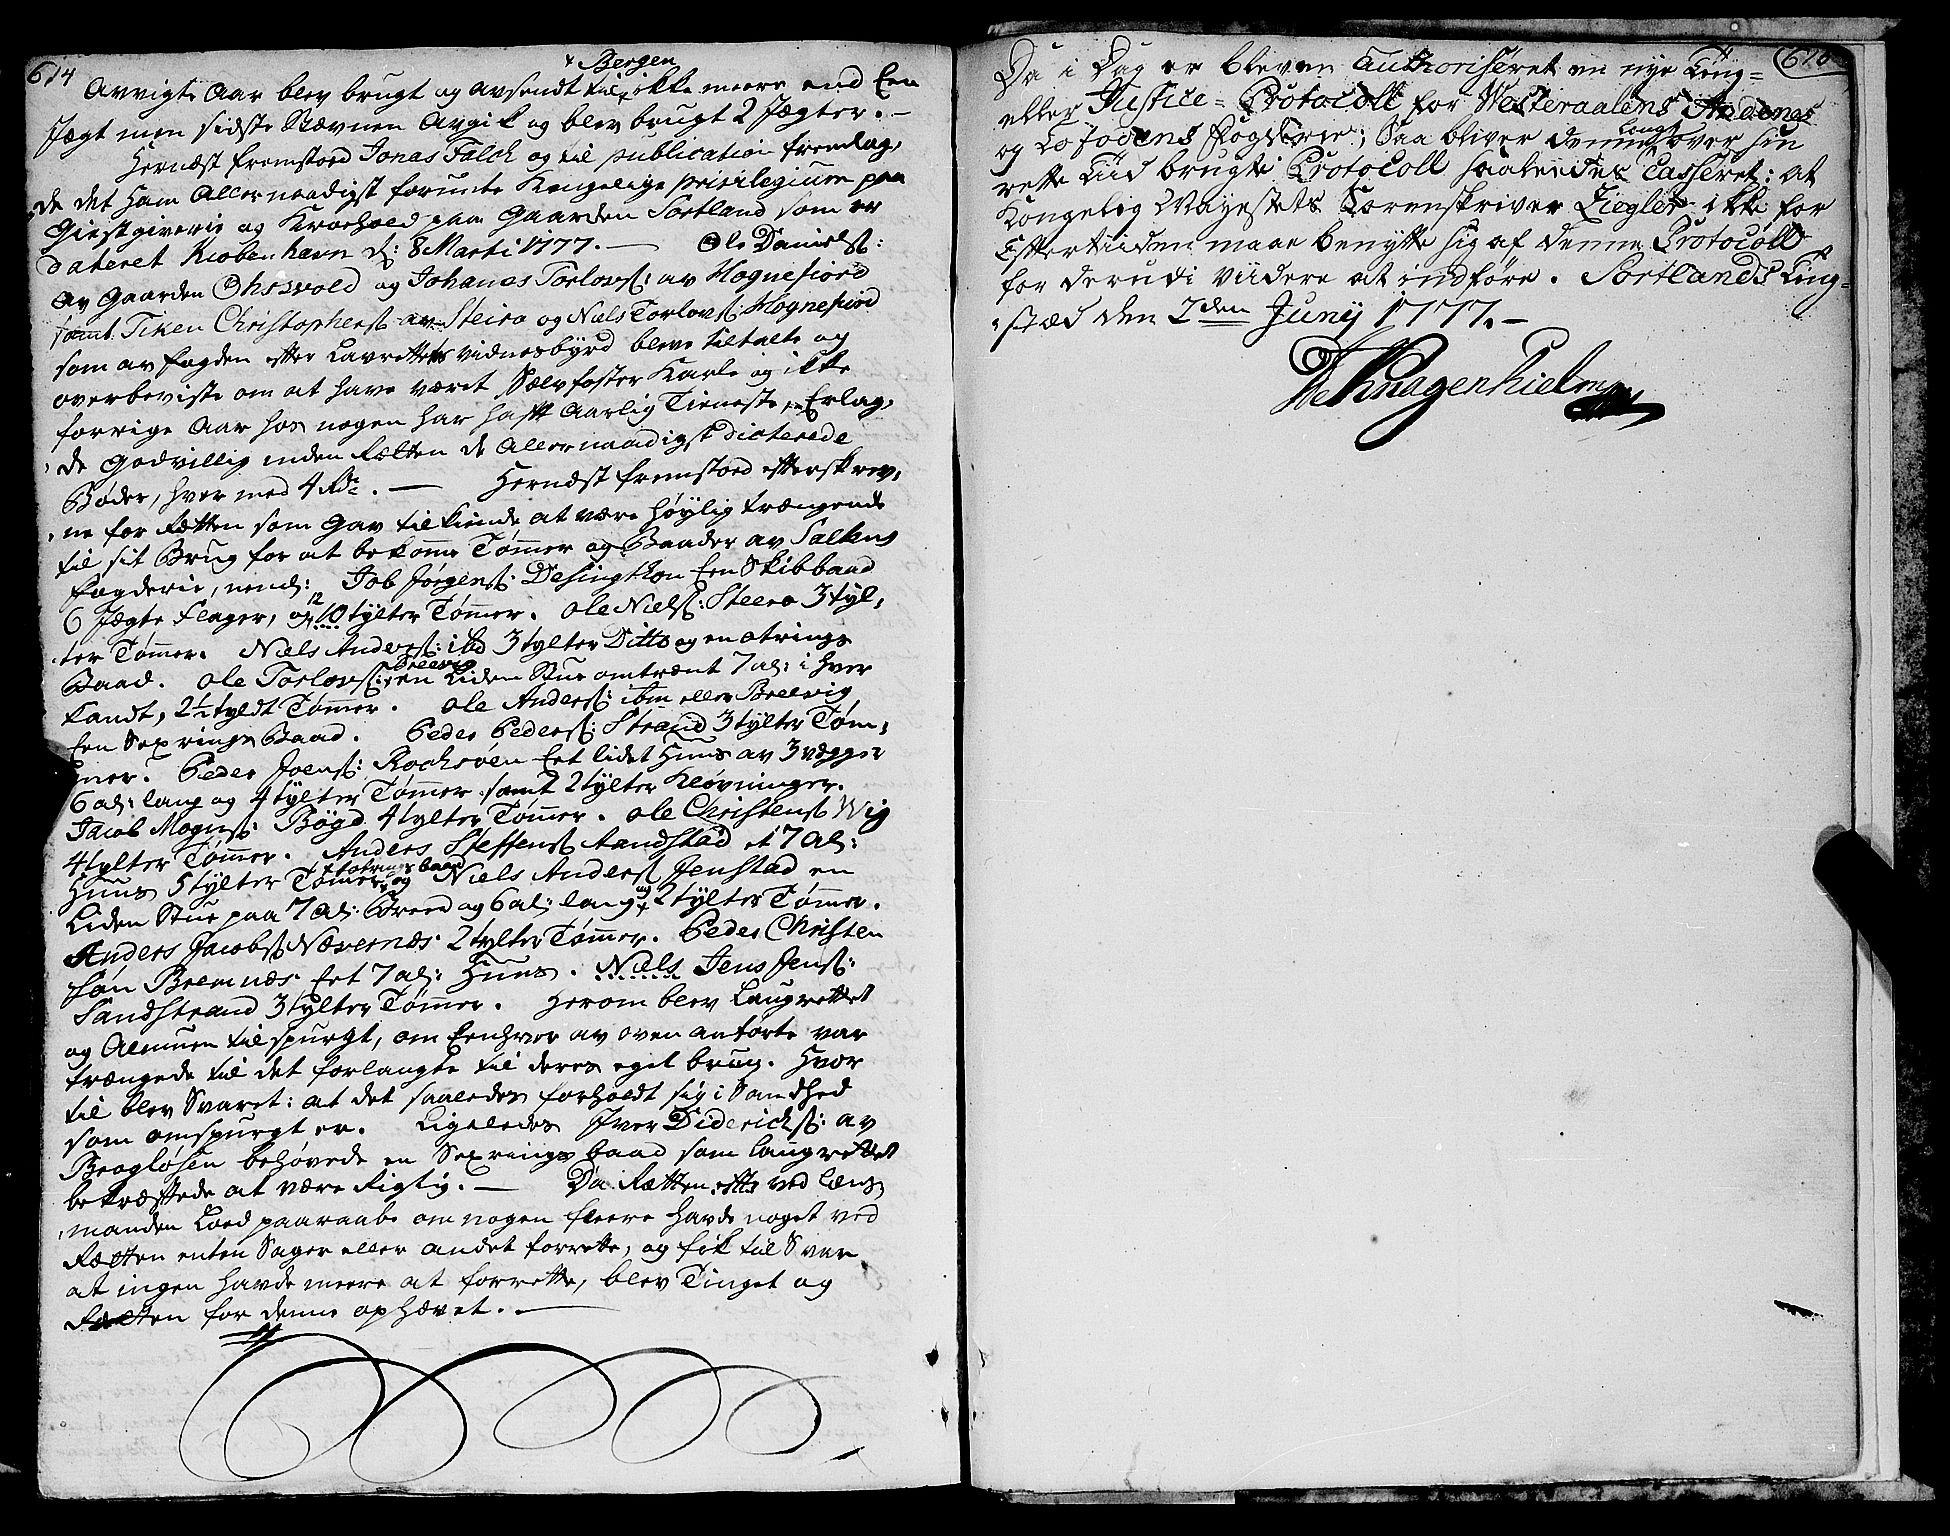 614
Avvigte Aar blev brugt og avsendt til + Bergen ikke meere end Een
Jægt men sidste Stævnen Avgik og blev brugt 2 Jægter. –
Hernæst fremstoed Jonas Falch og til publication fremlag,
de det ham Allernaadigst forundte Kongelige privilegium paa
Giestgiverie og Kroehold paa Gaarden Sortland som er
dateret Kiøbenhavn d: 8 Marti 1777. — Ole Daniels:
av Gaarden Ohsvold og Johanes Torlovs: av Hognefiord
samt Christophers av Steiro og Niels Torlovs Hognefiord
som av fogden efter Lavrettets vidnesbyrd bleve tiltalte og
overbeviste om at have været Sælvfoster Karle og ikke
forrige Aar hos nogen har hafft Aarlig Tieneste, Erlag,
de godvillig inden Rætten de Allernaadigst dicterede
Bøder, hver med 4 Rd. — Hernæst fremstoed efterskrev,
ne for Rætten som gav tilkiende at være høylig trængende
til sit Brug for at bekomme Tømmer og Baader av Saltens
fogderie, neml: Job Jørgens: Een Skibbaad
6 Jægte Flager, og 12 10 tylter Tømmer. Ole Niels: Steero 3 tyl,
ter Tømmer. Niels Anders: ibd 3 tylter Ditto og en otrings
Baad. Ole Torlovs: Breevig en Liden Stue omtrent 7 al: i hver
kandt, 2½ tyldt Tømmer. Ole Anders: ibm eller Breevig
Een Sexrings Baad. Peder Peders: Strand 3 tylter Tøm,
mer. Peder Joens: Rochsøen Eet lidet Huus av 3 vægger
6 al: lang og 4 tylter Tømmer samt 2 tylter Kløvninger.
Jacob Mogns: Bøgd 4 tylter Tømmer. Ole Christens Wig
4 tylter Tømmer. Anders Steffens Aandstad et 7 al:
Huus 5 tylter Tømmer, og + otrings baad Niels Anders Jenstad en
Liden Stue paa 7 al: Breed og 6 al: lang og 2 tylter Tømmer.
Anders Jacobs Nævernæs 2 tylter Tømmer. Peder Christen
søn Bremnæs Eet 7 al: Huus. Niels Jens Jens:
Sandstrand 3 tylter Tømmer. Herom blev Laugrettet
og Almuen tilspurgt, om Eenhver av oven anførte var
trængede til det forlangte til deres eget brug. Hvor
til blev Svaret: at det saaledes forholdt sig i Sandhed
som omspurgt er. Ligeledes Iver Diderichs: av
Bragløsen behøvede en Sexrings baad som Laugrettet
bekræftede at være Rigtig. — Da Rætten ved Læns,
manden Loed paaraabe om nogen fleere havde noget ved
Rætten enten Sager eller andet forrette, og fik til Svar
at ingen havde meere at forrette, blev Tinget og
Rætten for denne ophævet. —
Da i Dag er bleven Authoriseret en nye Ting-
eller Justice-Protocoll for Westeraalens Andenes
og Lofodens fogderie; Saa bliver denne langt over sin
rette Tiid brugte Protocoll saaleedes Casseret: at
Kongelig Mayestets Sorenskriver Ziegler ikke for
Eftertiiden maae benytte sig af denne Protocoll
for derudi viidere at indføre. Sortlands Ting-
stæd den 2den Junij 1777. –
Knagenhielm